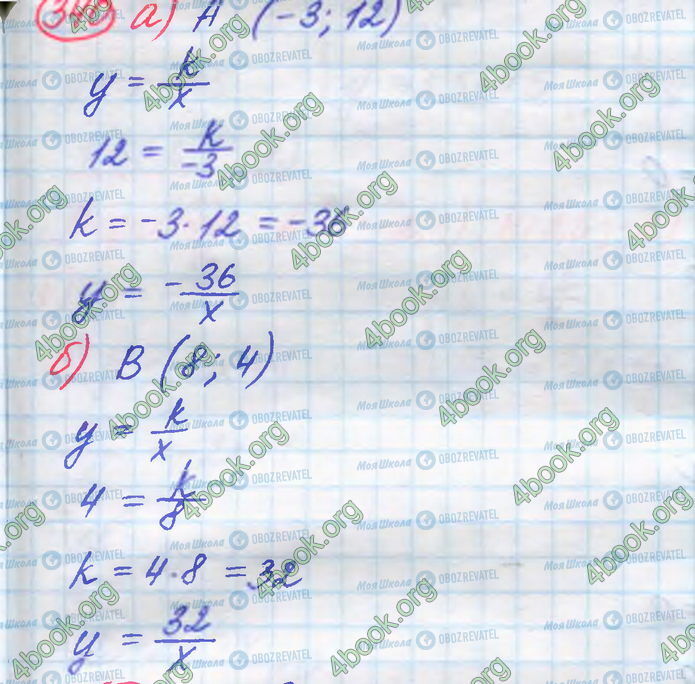 а) A (-3; 12)
y = k/x
12 = k/-3
k = -3·12 = -36
y = -36/x
б) B (8; 4)
y = k/x
4 = k/8
k = 4·8 = 32
y = 32/x
4book.org
МояШкола OBOZREVATEL